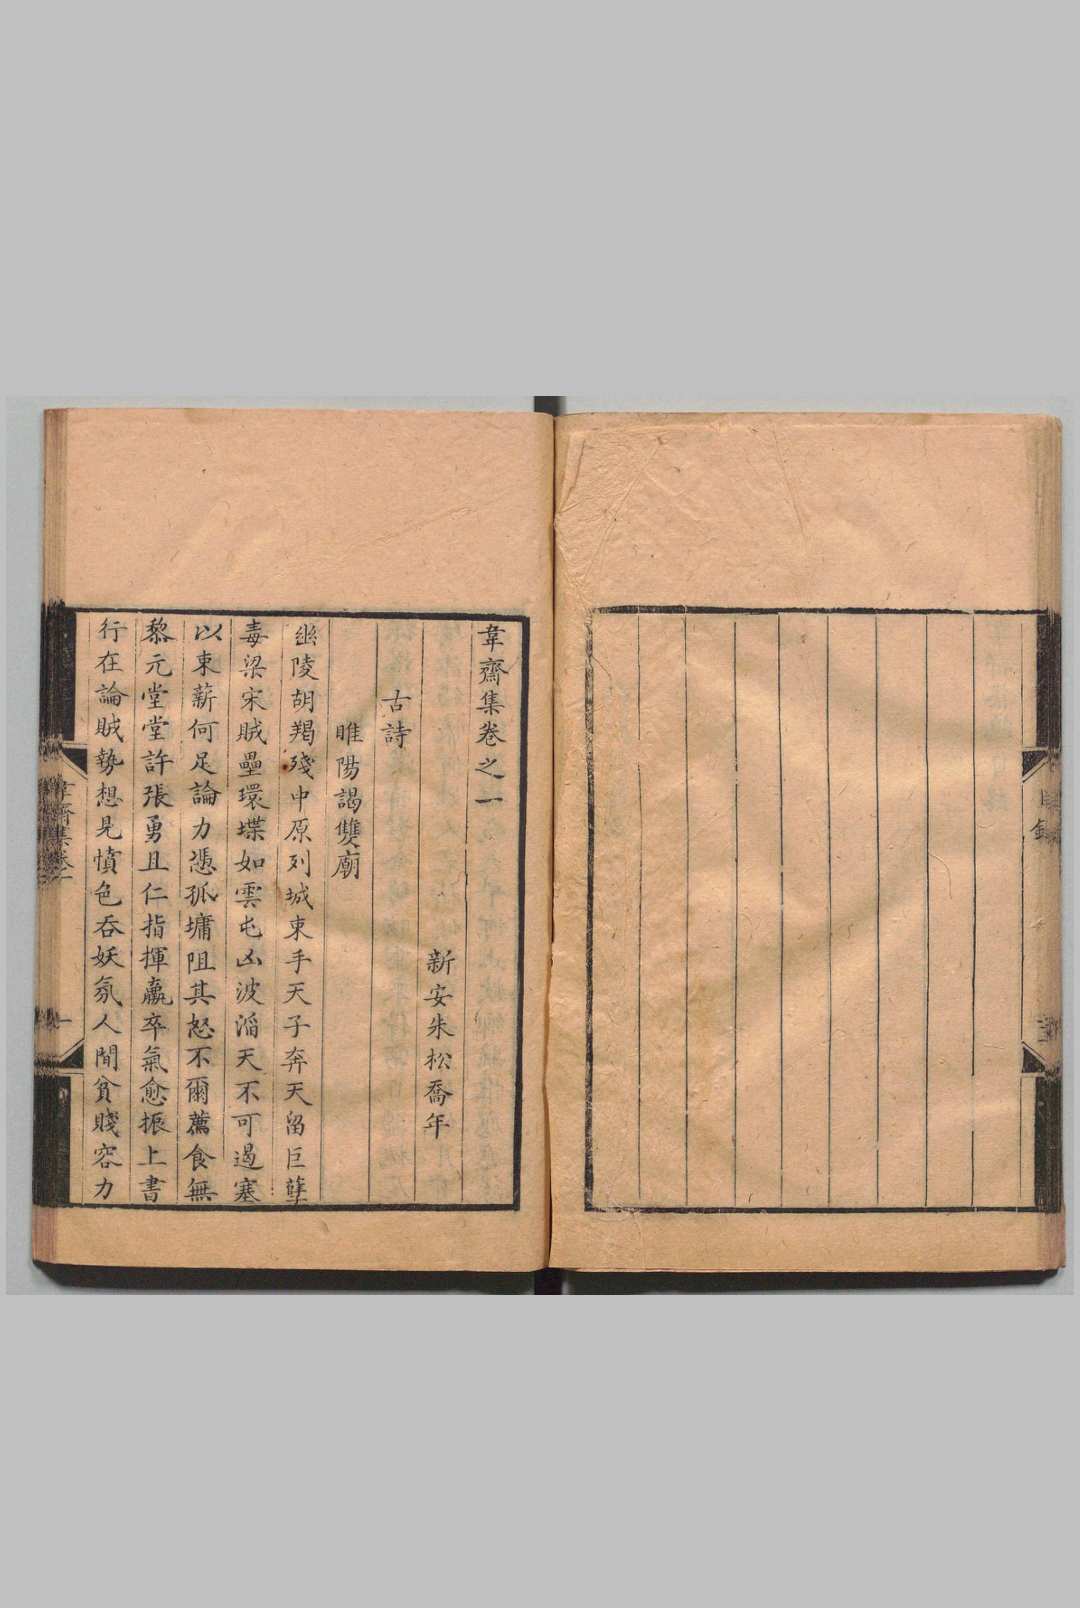 目錄
韋齋集卷之一
新安朱松喬年
古詩
睢陽謁雙廟
幽陵胡羯殘中原列城束手天子奔天留巨孽
毒梁宋賊壘環堞如雲屯凶波滔天不可遏塞
以束薪何足論力憑孤墉阻其怒不爾薦食無
黎元堂堂許張勇且仁指揮羸卒氣愈振上書
行在論賊勢想見憤色吞妖氛人間貧賤容力
韋齋集卷一
一